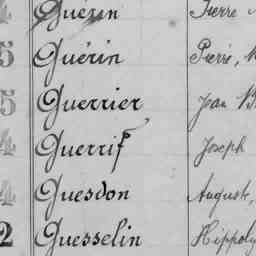 4 Guérin Pierre
5 Guérin Pierre, M
5 Guerrier Jean B
4 Guerrif Joseph
4 Guesdon Auguste,
2 Guesselin Hippoly